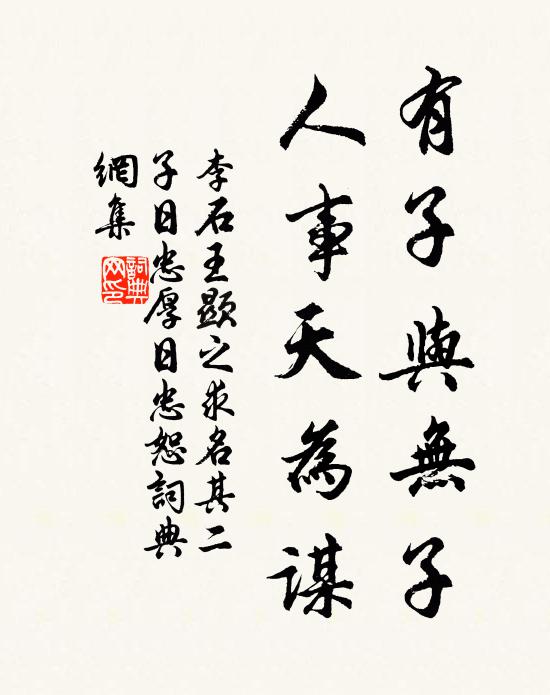 有子與無子
人事天為謀
李石王顯之求名其二
子日忠厚日忠恕詞典
網集
詞典網印